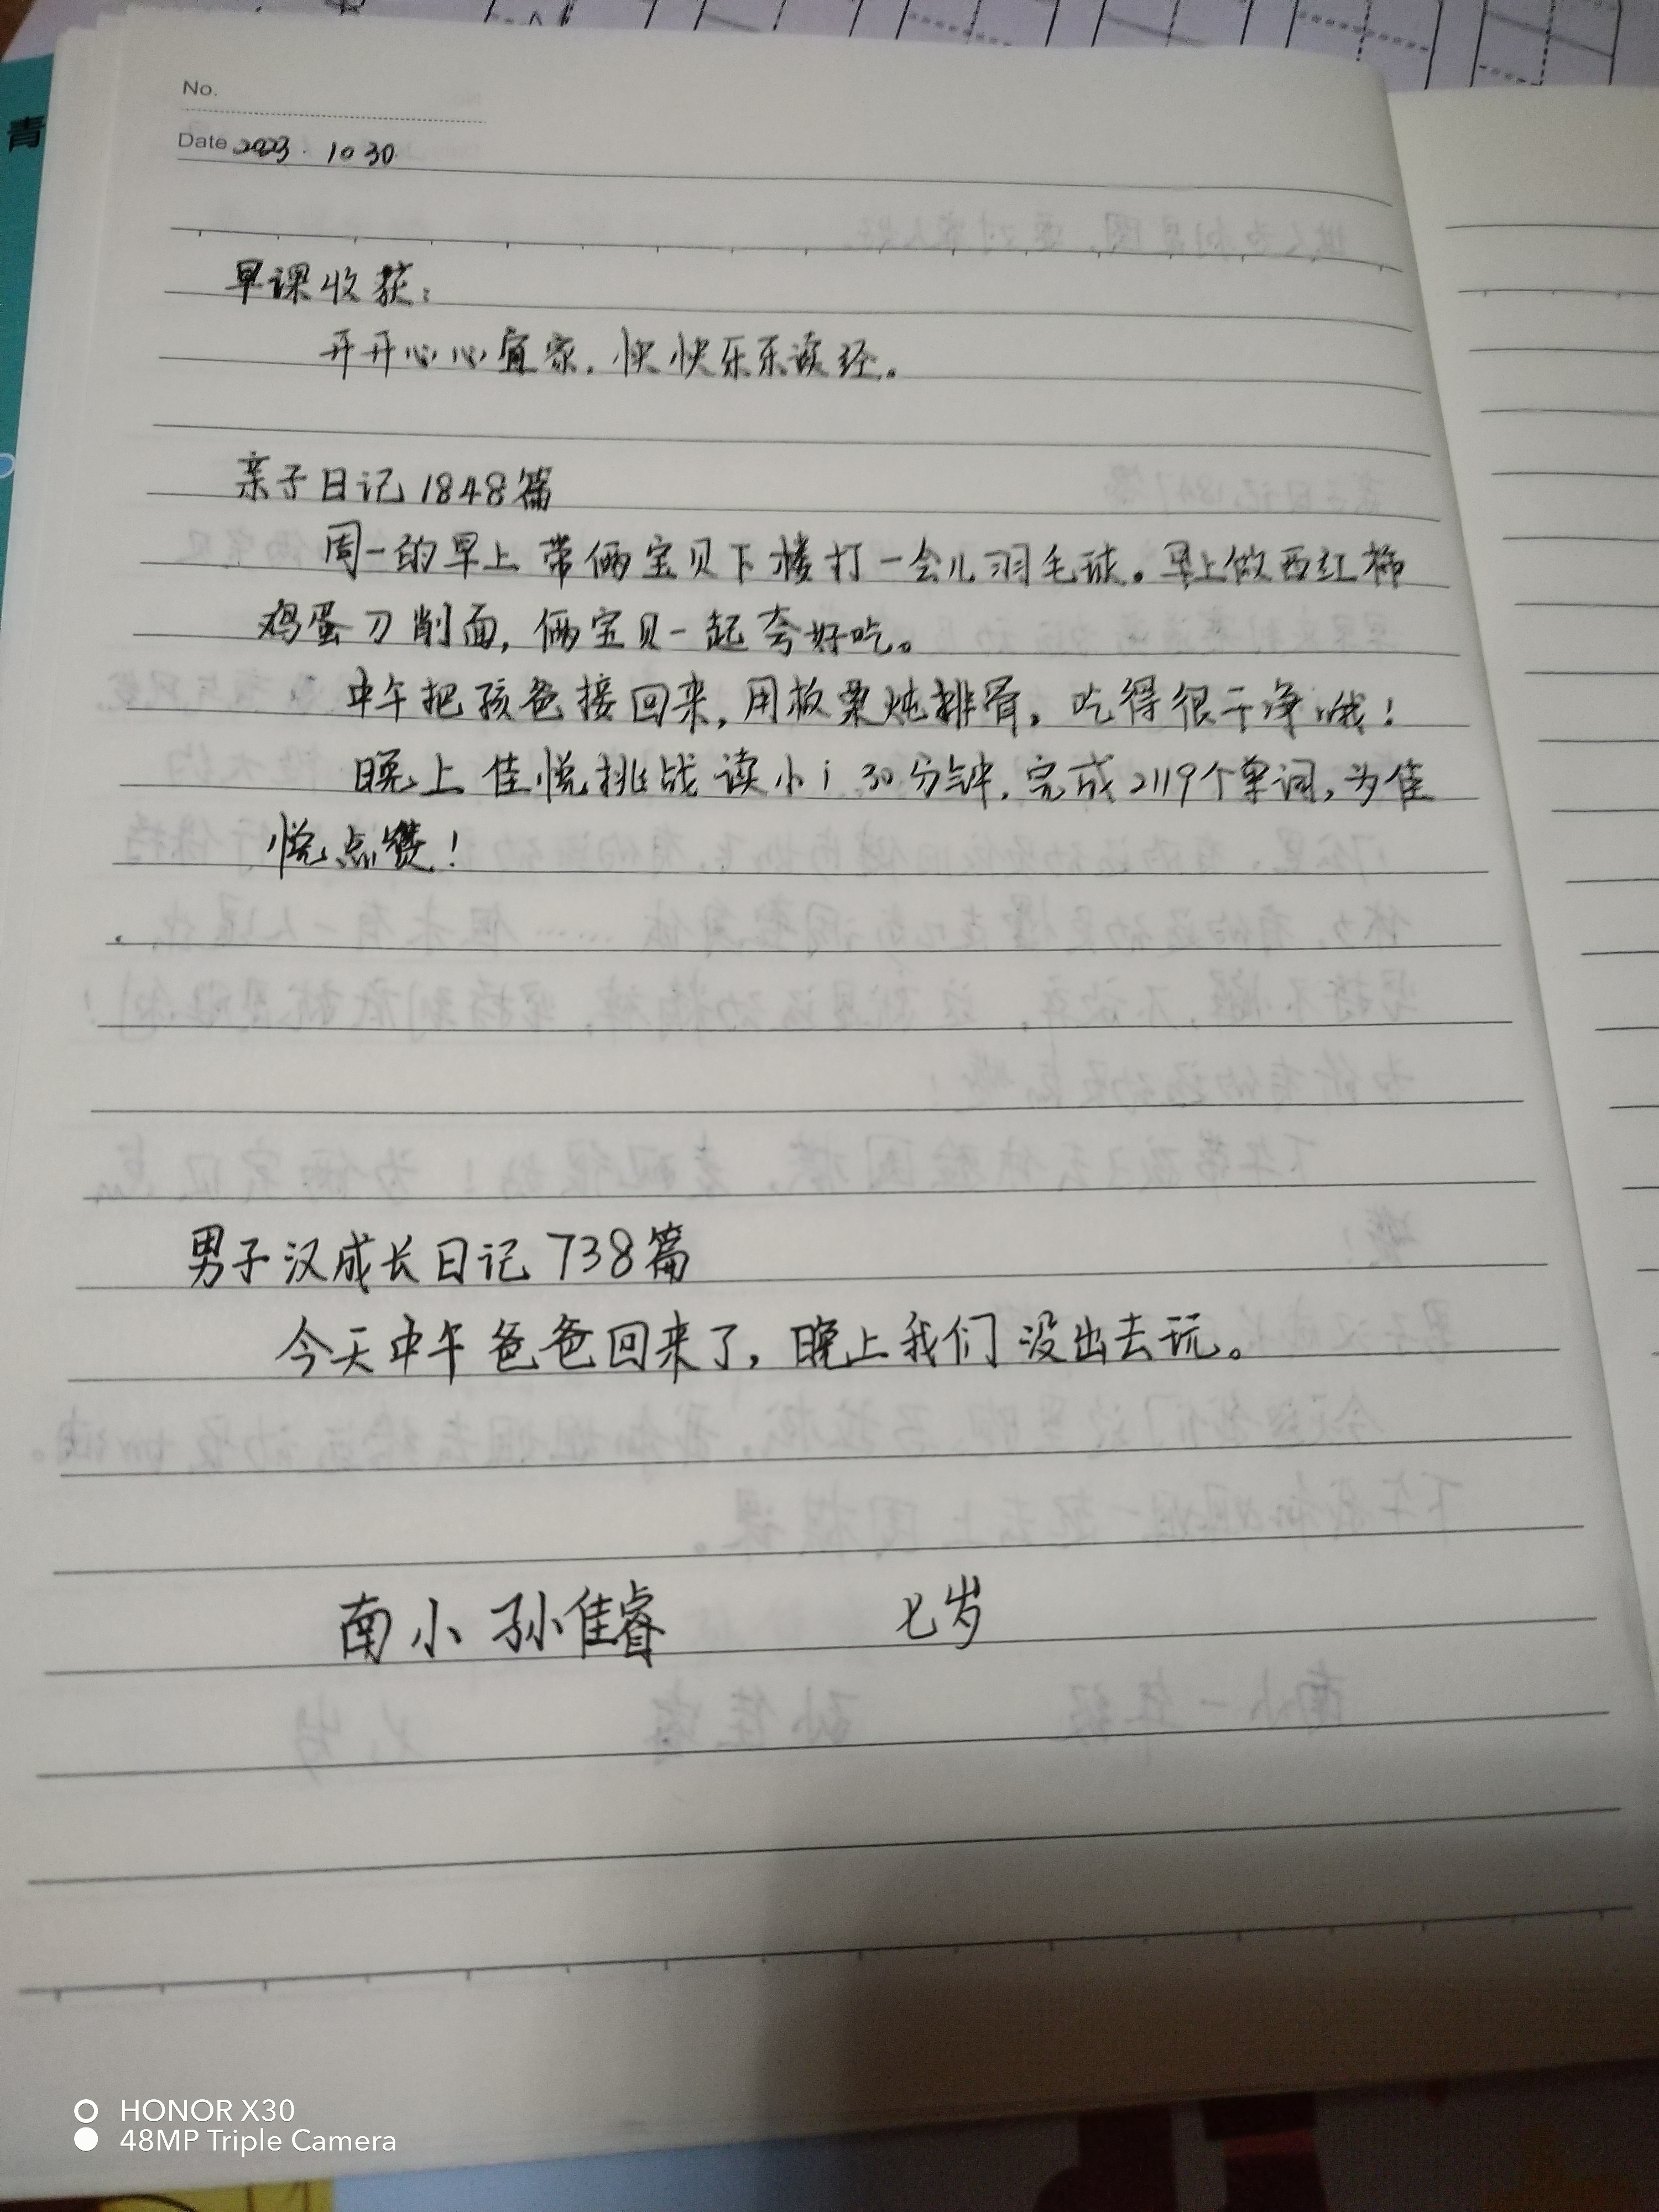 青
No.
Date 2023.10 30
早课收获：
开开心心宜家，快快乐乐读经。
亲子日记1848篇
周一的早上带俩宝贝下楼打一会儿羽毛球。早上做西红柿
鸡蛋刀削面，俩宝贝一起夸好吃。
中午把孩爸接回来，用板栗炖排骨，吃得很干净哦！
晚上佳悦挑战读小i 30分钟，完成2119个单词，为佳
悦点赞！
男子汉成长日记738篇
今天中午爸爸回来了，晚上我们没出去玩。
南小 孙佳睿 七岁
HONOR X30
48MP Triple Camera